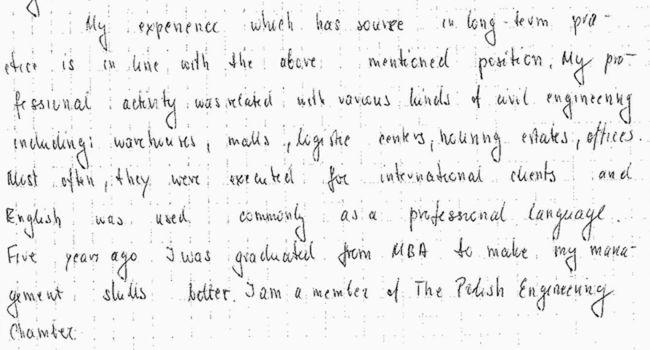 My experience which has source in long-term pra-
ctice is in line with the above mentioned position. My pro-
fessional activity was related with various kinds of civil engineering
including: warehouses, malls, logistic centers, housing estates, offices.
Most often, they were executed for international clients and
English was used commonly as a professional language.
Five years ago I was graduated from MBA to make my mana-
gement skills better. I am a member of The Polish Engineering
Chamber.